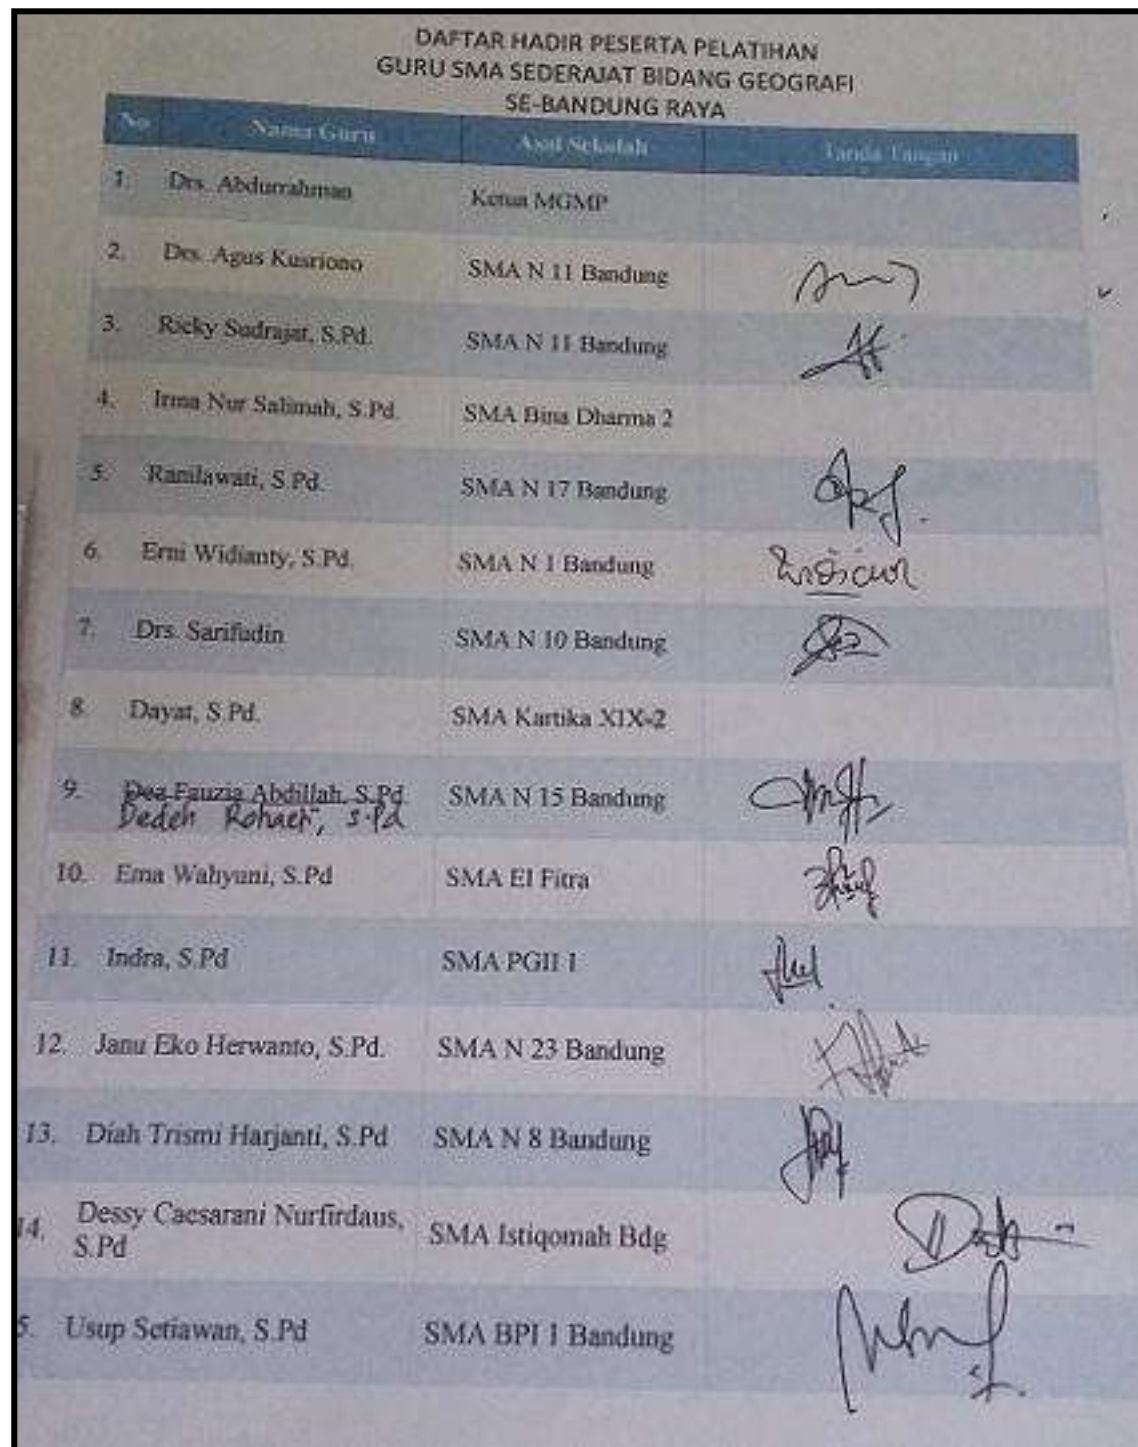 DAFTAR HADIR PESERTA PELATIHAN
GURU SMA SEDERAJAT BIDANG GEOGRAFI
SE-BANDUNG RAYA
No Nama Guru Asal Sekolah Tanda Tangan
1. Drs. Abdurrahman Ketua MGMP
2. Drs. Agus Kusriono SMA N 11 Bandung
3. Ricky Sudrajat, S.Pd. SMA N 11 Bandung
4. Irma Nur Salimah, S.Pd. SMA Bina Dharma 2
5. Ranilawati, S.Pd. SMA N 17 Bandung
6. Erni Widianty, S.Pd. SMA N 1 Bandung
7. Drs. Sarifudin SMA N 10 Bandung
8. Dayat, S.Pd. SMA Kartika XIX-2
9. Dea Fauzia Abdillah, S.Pd SMA N 15 Bandung
Dedeh Rohaeti, S.Pd
10. Ema Wahyuni, S.Pd SMA El Fitra
11. Indra, S.Pd SMA PGII 1
12. Janu Eko Herwanto, S.Pd. SMA N 23 Bandung
13. Diah Trismi Harjanti, S.Pd SMA N 8 Bandung
14. Dessy Caesarani Nurfirdaus, SMA Istiqomah Bdg
S.Pd
5. Usup Setiawan, S.Pd SMA BPI 1 Bandung